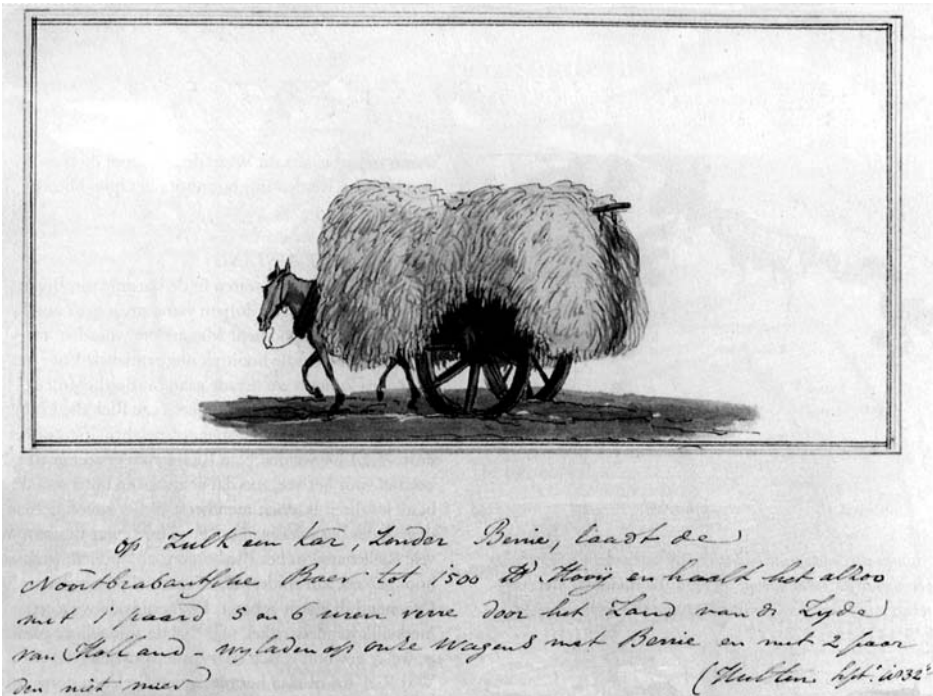 op Zulk een kar, Zonder Berrie, laadt de
Noordbrabantsche Boer tot 1500 ℔ Hooij en haalt het alzoo
met 1 paard 5 en 6 uren verre door het Zand van de Zyde
van Holland - wy laden op onze wagens met Berrie en met 2 paar
den niet meer
(Hulten Sept. 1832